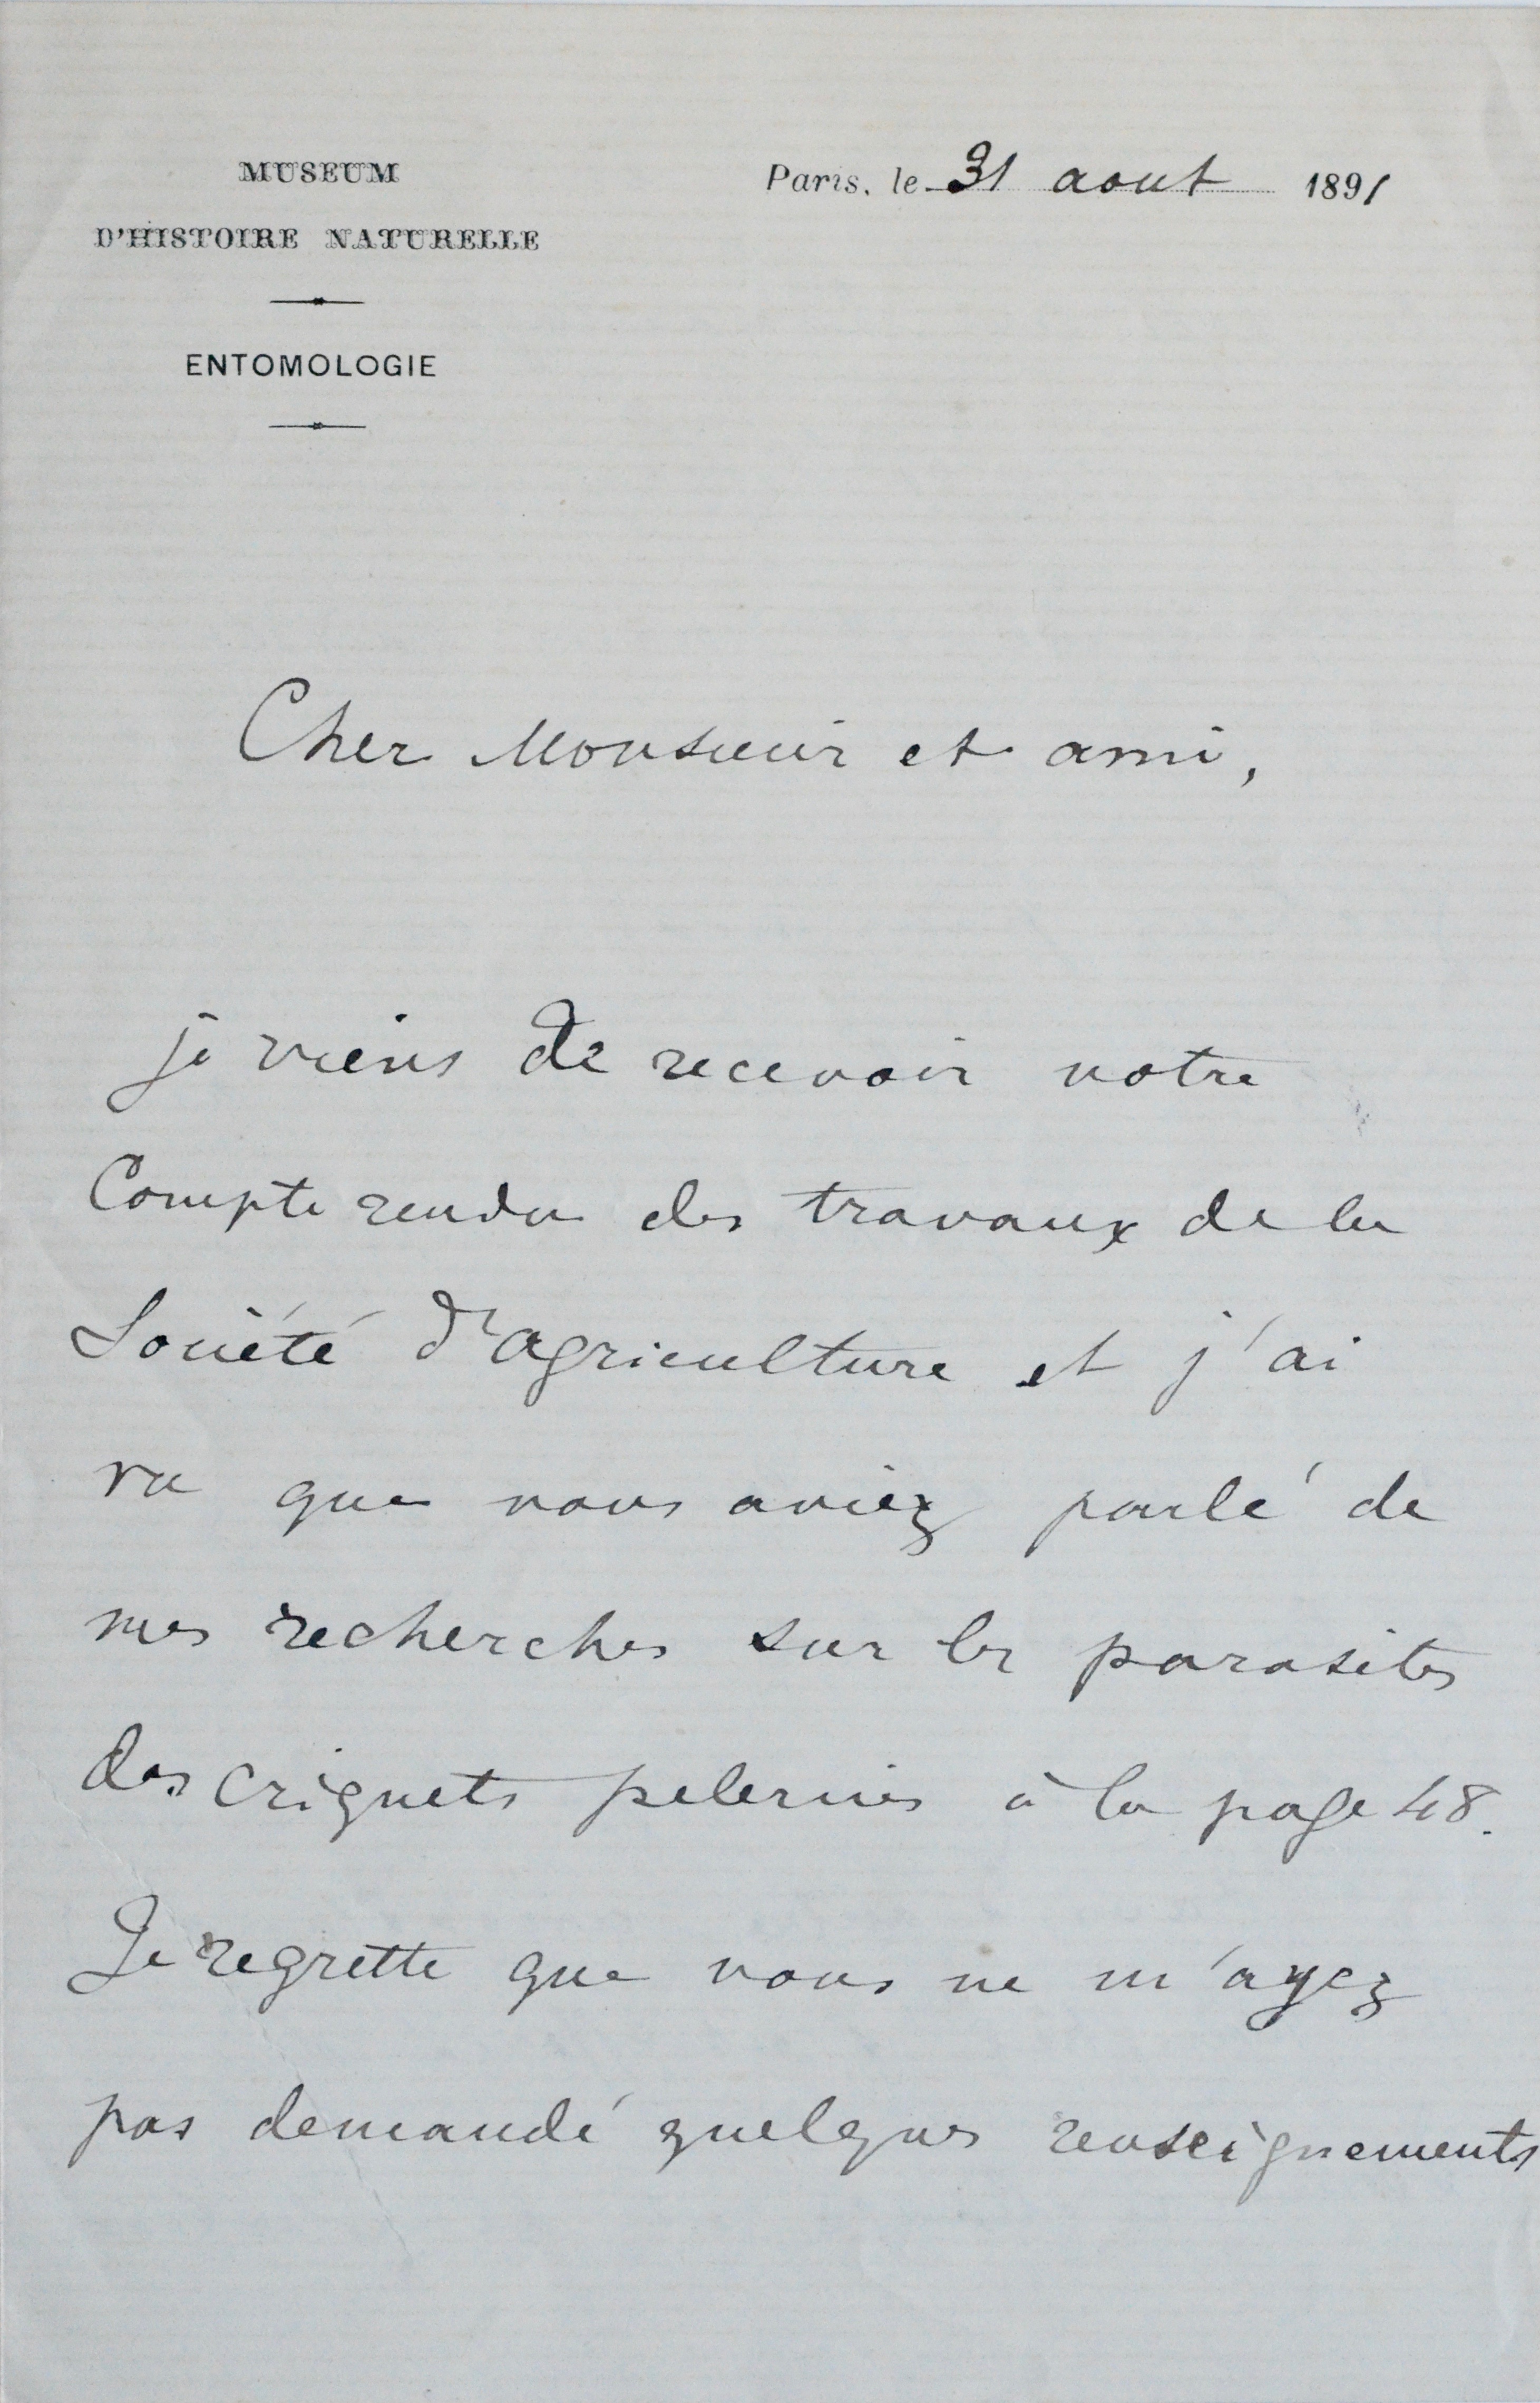 MUSEUM
D'HISTOIRE NATURELLE
ENTOMOLOGIE
Paris, le 31 aout 1891
Cher Monsieur et ami,
je viens de recevoir votre
Compte rendu des travaux de la
Société d'agriculture et j'ai
vu que vous aviez parlé de
mes recherches sur les parasites
des criquets pelerins à la page 48.
Je regrette que vous ne m'ayez
pas demandé quelques renseignements